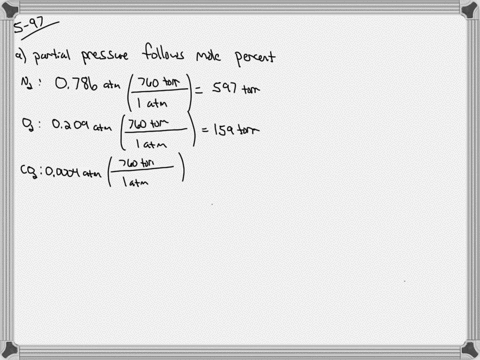 5-97
a) partial pressure follows mole percent
N₂: 0.786 atm (760 torr / 1 atm) = 597 torr
O₂: 0.209 atm (760 torr / 1 atm) = 159 torr
CO₂: 0.0004 atm (760 torr / 1 atm)